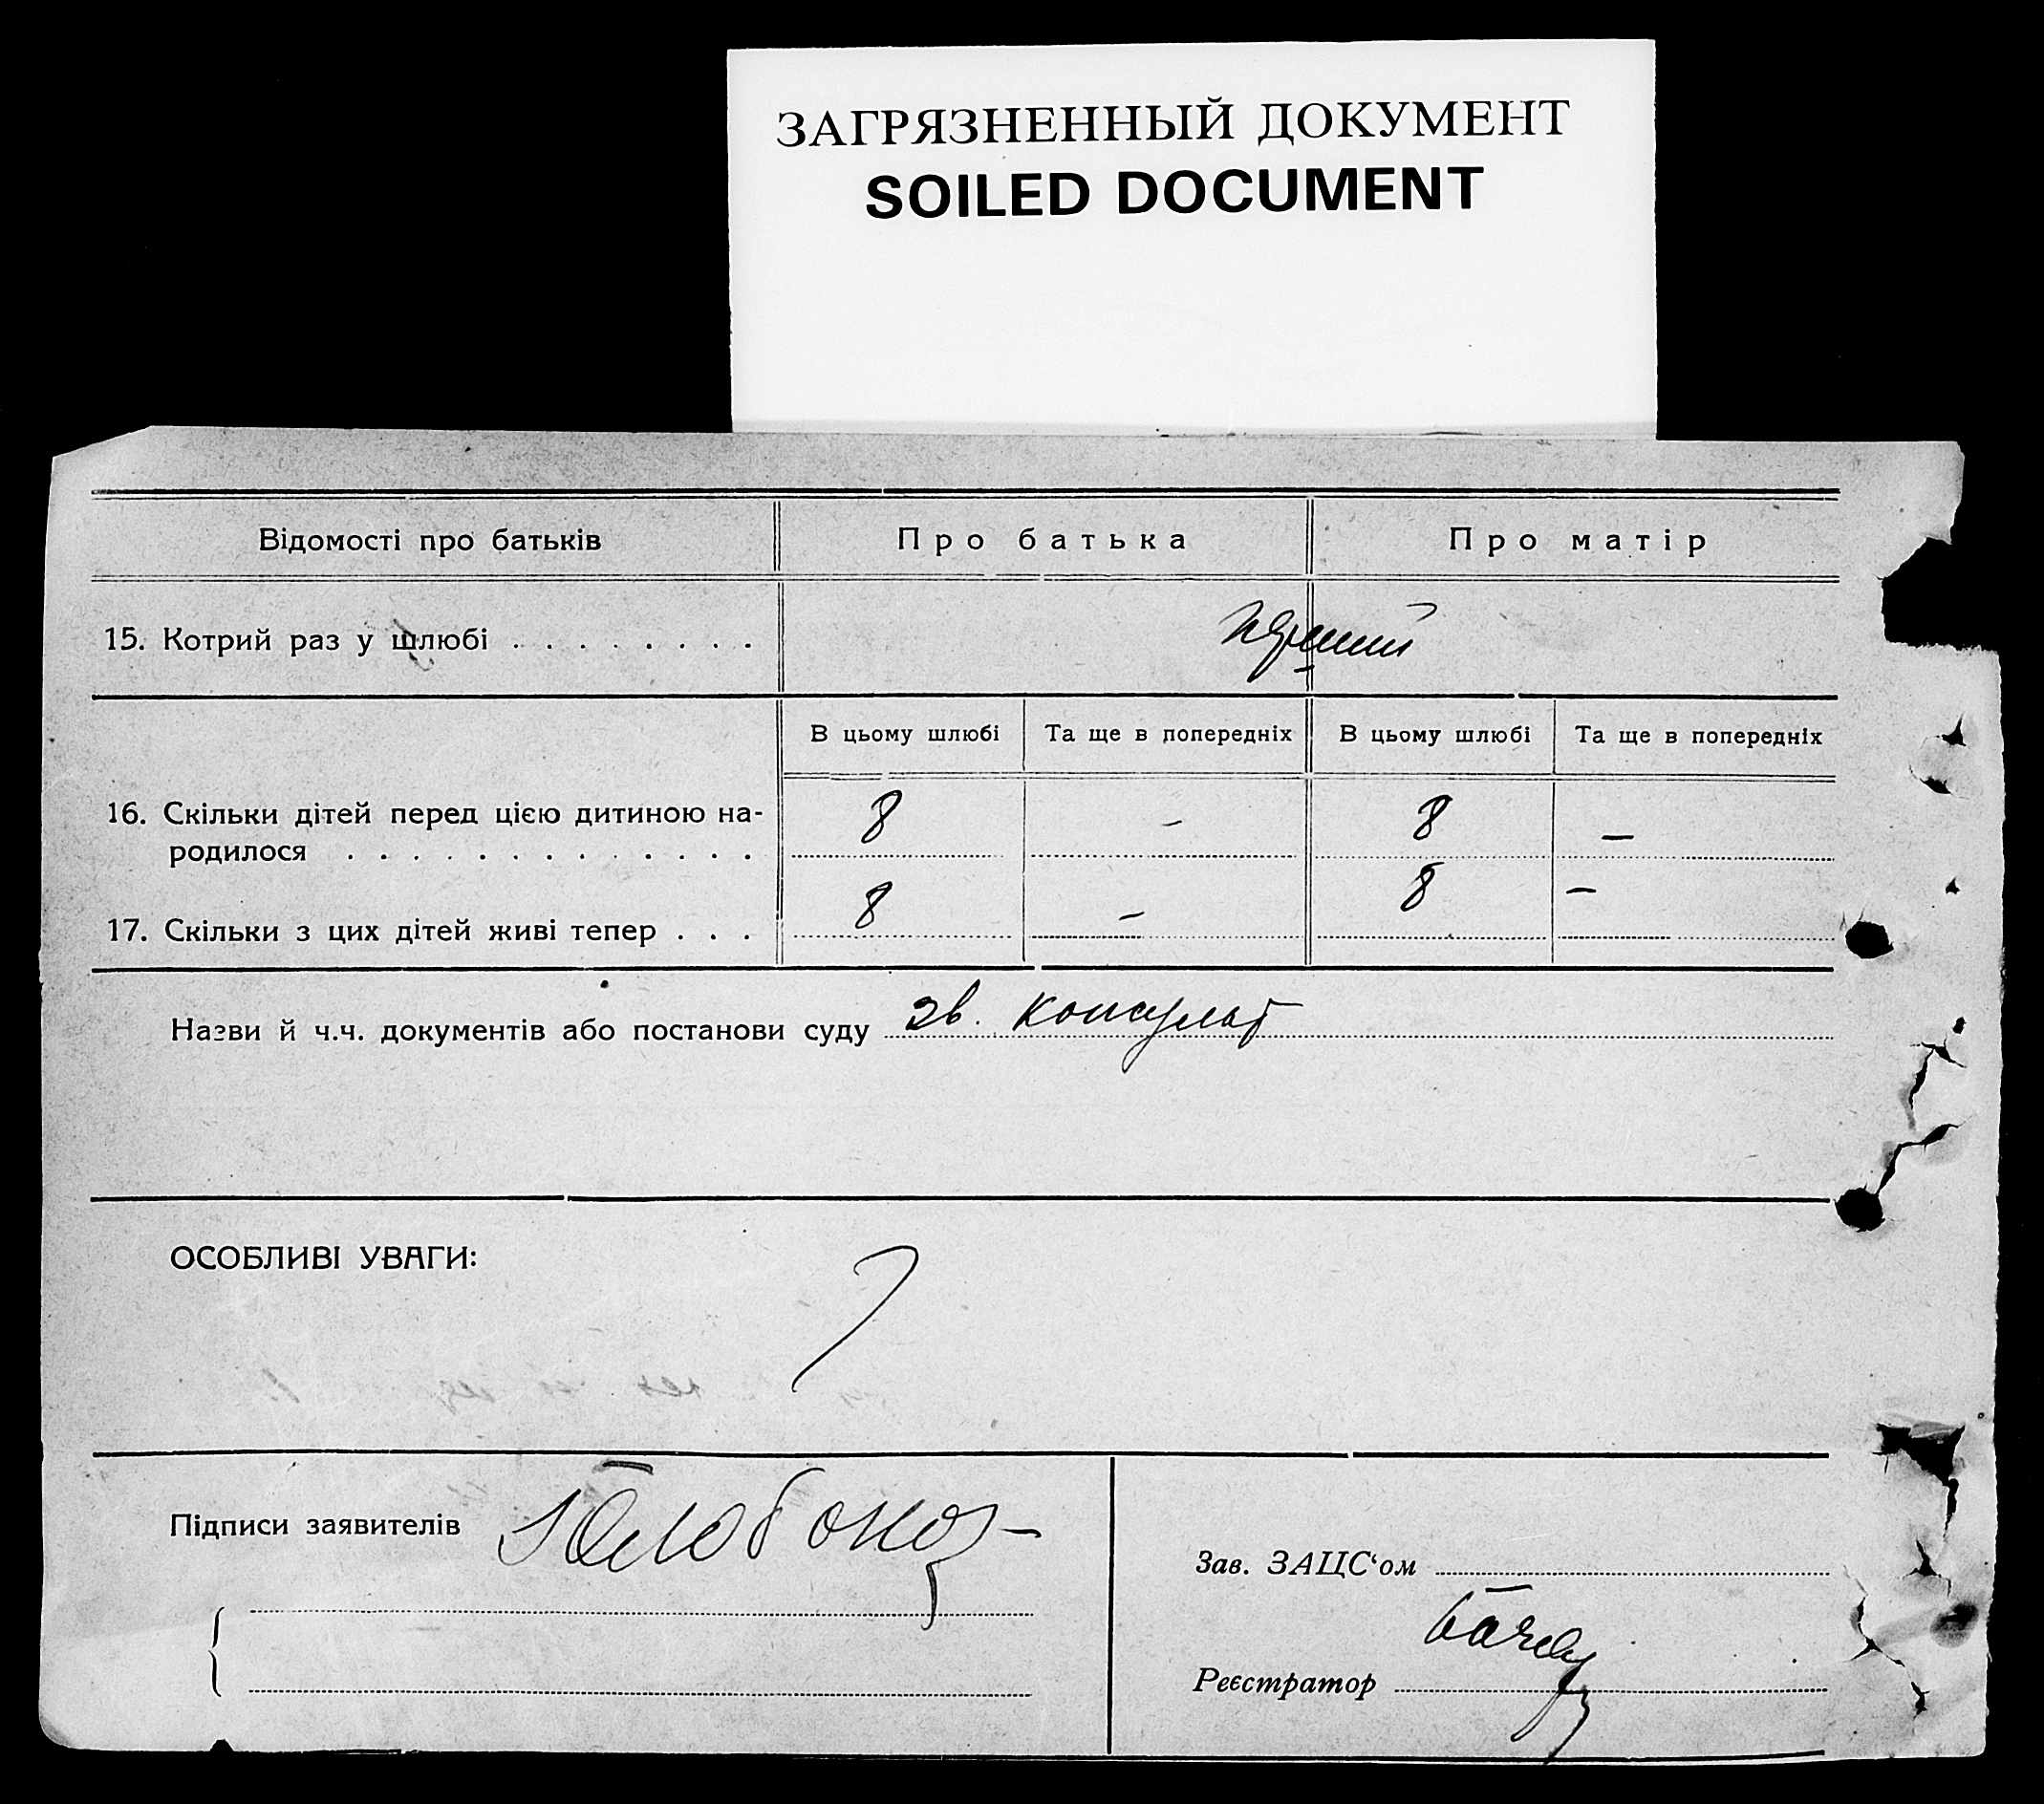 ЗАГРЯЗНЕННЫЙ ДОКУМЕНТ
SOILED DOCUMENT
Відомості про батьків Про батька Про матір
15. Котрий раз у шлюбі . . . . . . . .
В цьому шлюбі Та ще в попередніх В цьому шлюбі Та ще в попередніх
16. Скільки дітей перед цією дитиною на- 8 – 8 –
родилося . . . . . . . . . . . . .
17. Скільки з цих дітей живі тепер . . . 8 – 8 –
Назви й ч.ч. документів або постанови суду зв. консульт
ОСОБЛИВІ УВАГИ:
Підписи заявителів
Зав. ЗАЦС‘ом
Реєстратор